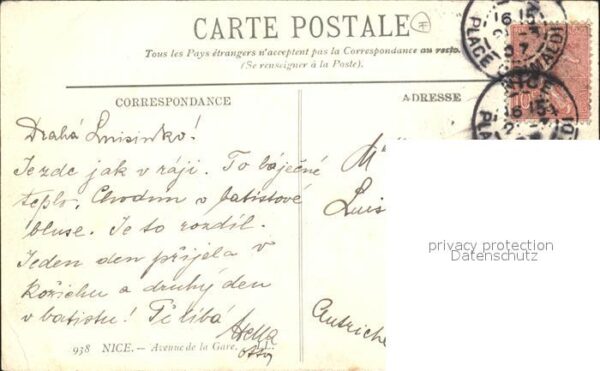 CARTE POSTALE
Tous les Pays étrangers n'acceptent pas la Correspondance au recto.
(Se renseigner à la Poste).
CORRESPONDANCE
ADRESSE
Drahá Luisinko!
Je zde jak v ráji. To báječné
teplo. Chodím v batistové
bluse. Je to rozdíl.
Jeden den přijela v
kožichu a druhý den
v batistu! Tě líbá
Hella
Luis
Autriche
938 NICE. — Avenue de la Gare. LL.
NICE
PLACE
privacy protection
Datenschutz